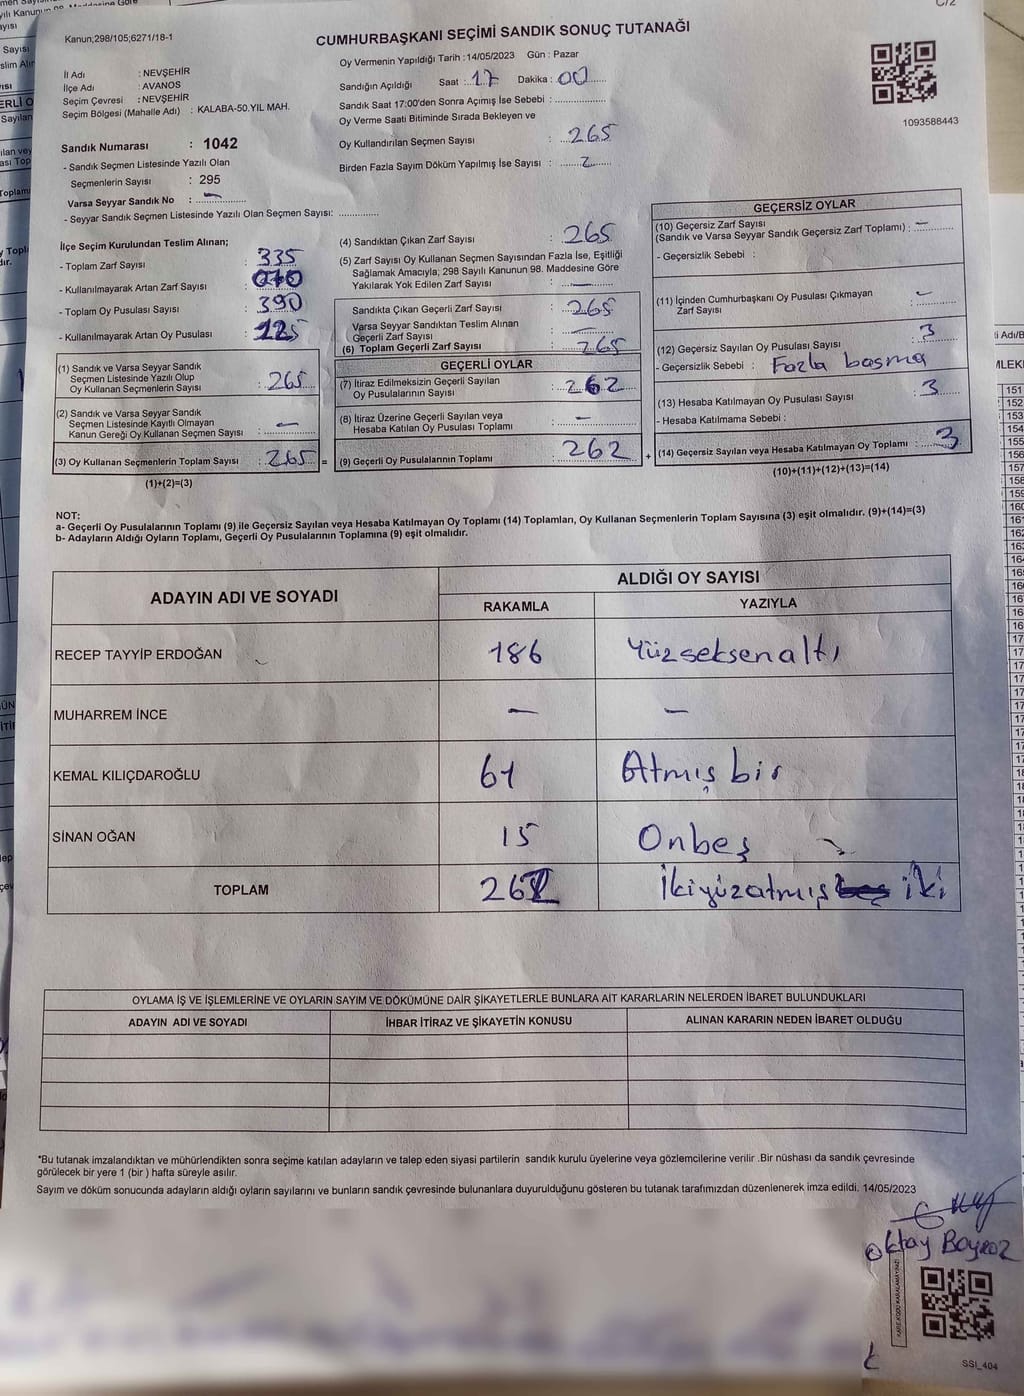 Kanun;298/105;6271/18-1
CUMHURBAŞKANI SEÇİMİ SANDIK SONUÇ TUTANAĞI
İl Adı : NEVŞEHİR
İlçe Adı : AVANOS
Seçim Çevresi : NEVŞEHİR
Seçim Bölgesi (Mahalle Adı) : KALABA-50.YIL MAH.
Oy Vermenin Yapıldığı Tarih :14/05/2023 Gün : Pazar
Sandığın Açıldığı Saat : 17 Dakika : 00
Sandık Saat 17:00'den Sonra Açımış İse Sebebi :
Oy Verme Saati Bitiminde Sırada Bekleyen ve
Oy Kullandırılan Seçmen Sayısı : 265
Birden Fazla Sayım Döküm Yapılmış İse Sayısı : 2
1093588443
Sandık Numarası : 1042
- Sandık Seçmen Listesinde Yazılı Olan
Seçmenlerin Sayısı : 295
Varsa Seyyar Sandık No : —
- Seyyar Sandık Seçmen Listesinde Yazılı Olan Seçmen Sayısı:
İlçe Seçim Kurulundan Teslim Alınan;
- Toplam Zarf Sayısı : 335
- Kullanılmayarak Artan Zarf Sayısı : 070
- Toplam Oy Pusulası Sayısı : 390
- Kullanılmayarak Artan Oy Pusulası : 125
(1) Sandık ve Varsa Seyyar Sandık
Seçmen Listesinde Yazılı Olup
Oy Kullanan Seçmenlerin Sayısı : 265
(2) Sandık ve Varsa Seyyar Sandık
Seçmen Listesinde Kayıtlı Olmayan
Kanun Gereği Oy Kullanan Seçmen Sayısı : —
(3) Oy Kullanan Seçmenlerin Toplam Sayısı : 265 =
(1)+(2)=(3)
(4) Sandıktan Çıkan Zarf Sayısı : 265
(5) Zarf Sayısı Oy Kullanan Seçmen Sayısından Fazla İse, Eşitliği
Sağlamak Amacıyla; 298 Sayılı Kanunun 98. Maddesine Göre
Yakılarak Yok Edilen Zarf Sayısı : —
Sandıkta Çıkan Geçerli Zarf Sayısı : 265
Varsa Seyyar Sandıktan Teslim Alınan
Geçerli Zarf Sayısı : —
(6) Toplam Geçerli Zarf Sayısı : 265
GEÇERLİ OYLAR
(7) İtiraz Edilmeksizin Geçerli Sayılan
Oy Pusulalarının Sayısı : 262
(8) İtiraz Üzerine Geçerli Sayılan veya
Hesaba Katılan Oy Pusulası Toplamı : —
(9) Geçerli Oy Pusulalarının Toplamı : 262 +
GEÇERSİZ OYLAR
(10) Geçersiz Zarf Sayısı
(Sandık ve Varsa Seyyar Sandık Geçersiz Zarf Toplamı) : —
- Geçersizlik Sebebi :
(11) İçinden Cumhurbaşkanı Oy Pusulası Çıkmayan
Zarf Sayısı : —
(12) Geçersiz Sayılan Oy Pusulası Sayısı : 3
- Geçersizlik Sebebi : Fazla basma
(13) Hesaba Katılmayan Oy Pusulası Sayısı : 3
- Hesaba Katılmama Sebebi :
(14) Geçersiz Sayılan veya Hesaba Katılmayan Oy Toplamı : 3
(10)+(11)+(12)+(13)=(14)
NOT:
a- Geçerli Oy Pusulalarının Toplamı (9) ile Geçersiz Sayılan veya Hesaba Katılmayan Oy Toplamı (14) Toplamları, Oy Kullanan Seçmenlerin Toplam Sayısına (3) eşit olmalıdır. (9)+(14)=(3)
b- Adayların Aldığı Oyların Toplamı, Geçerli Oy Pusulalarının Toplamına (9) eşit olmalıdır.
ADAYIN ADI VE SOYADI
ALDIĞI OY SAYISI
RAKAMLA YAZIYLA
RECEP TAYYİP ERDOĞAN 186 Yüzseksenaltı
MUHARREM İNCE — —
KEMAL KILIÇDAROĞLU 61 Atmış bir
SİNAN OĞAN 15 Onbeş
TOPLAM 262 İkiyüzatmış iki
OYLAMA İŞ VE İŞLEMLERİNE VE OYLARIN SAYIM VE DÖKÜMÜNE DAİR ŞİKAYETLERLE BUNLARA AİT KARARLARIN NELERDEN İBARET BULUNDUKLARI
ADAYIN ADI VE SOYADI İHBAR İTİRAZ VE ŞİKAYETİN KONUSU ALINAN KARARIN NEDEN İBARET OLDUĞU
*Bu tutanak imzalandıktan ve mühürlendikten sonra seçime katılan adayların ve talep eden siyasi partilerin sandık kurulu üyelerine veya gözlemcilerine verilir .Bir nüshası da sandık çevresinde
görülecek bir yere 1 (bir ) hafta süreyle asılır.
Sayım ve döküm sonucunda adayların aldığı oyların sayılarını ve bunların sandık çevresinde bulunanlara duyurulduğunu gösteren bu tutanak tarafımızdan düzenlenerek imza edildi. 14/05/2023
Oktay
KARE KODU KARALAMAYINIZ!
SSİ_404